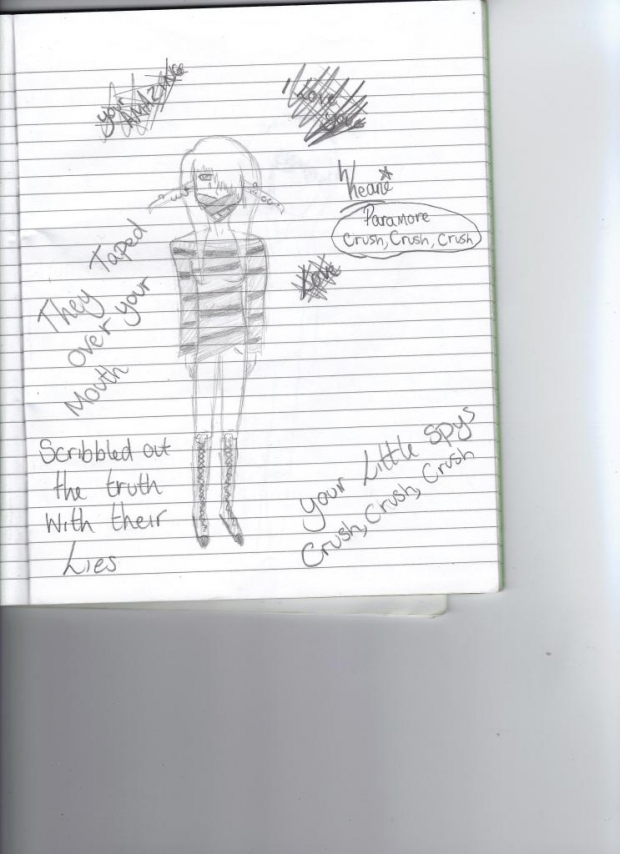 your
AMAZING
Love
Paramore
Crush, Crush, Crush
Love
They Taped
Over your
Mouth
Scribbled out
the truth
With their
Lies
your Little Spys
Crush, Crush, Crush